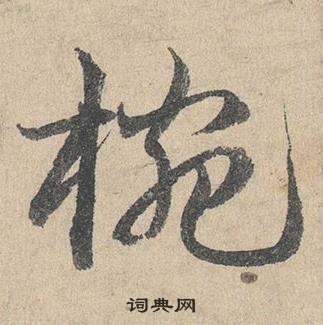 椀
词典网